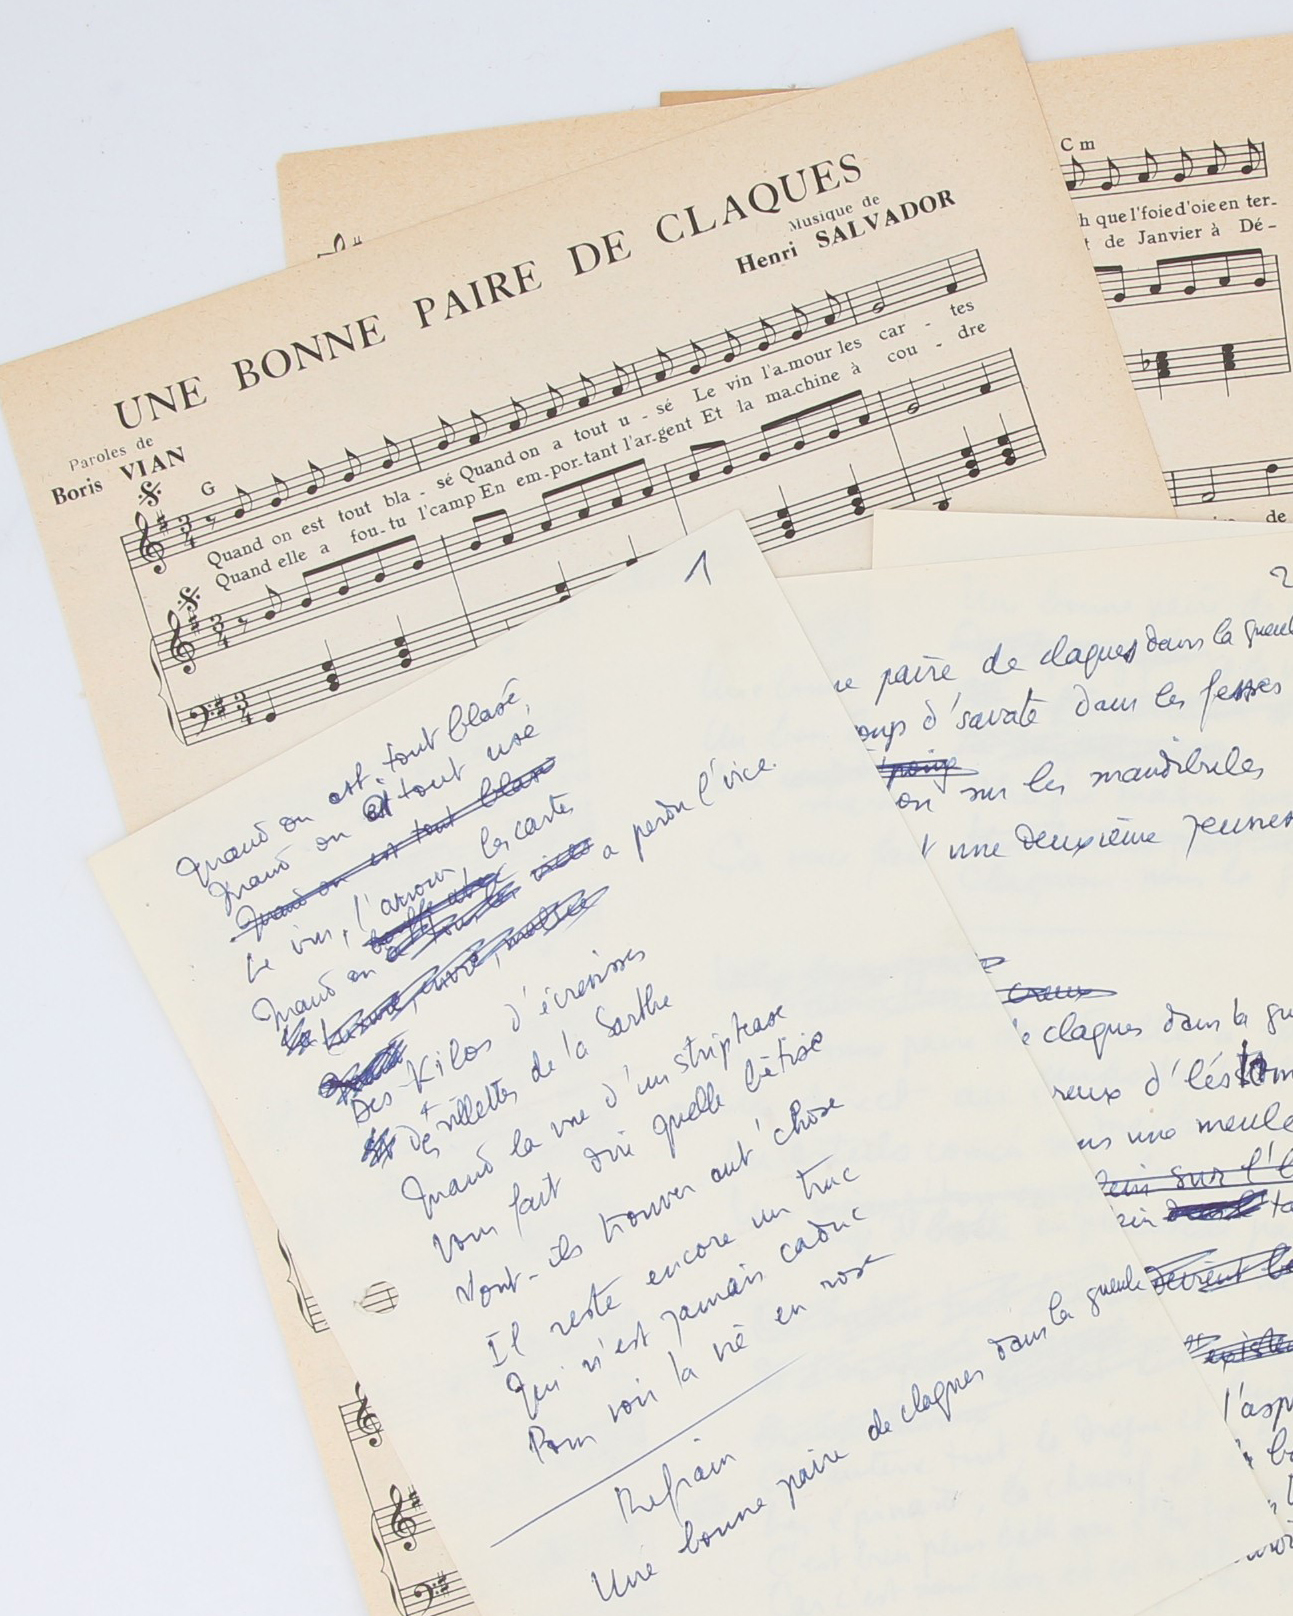 UNE BONNE PAIRE DE CLAQUES
Paroles de
Boris VIAN
Musique de
Henri SALVADOR
G
Quand on est tout bla - sé Quand on a tout u - sé Le vin l'a-mour les car - tes
Quand elle a fou-tu l'camp En em-por-tant l'ar-gent Et la ma-chine à cou - dre
C m
h que l'foie d'oie en ter-
t de Janvier à Dé -
de
1
Quand on est tout blasé,
Quand on a tout usé
Quand on est tout blasé
Le vin, l'amour, les cartes
Quand on a perdu l'vice
Des kilos d'écrevisses
Des rillettes de la Sarthe
Quand la vue d'un striptease
Vous fait dire quelle bêtise
Vont-ils trouver aut'chose
Il reste encore un truc
Qui n'est jamais caduc
Pour voir la vie en rose
Refrain
Une bonne paire de claques dans la gueule
2
ne paire de claques dans la gueul
oups d'savate dans les fesses
on sur les mandibules
une deuxième jeuness
creux
de claques dans la gu
reux d'l'estom
ns une meule
sur l'
devient
l'asp